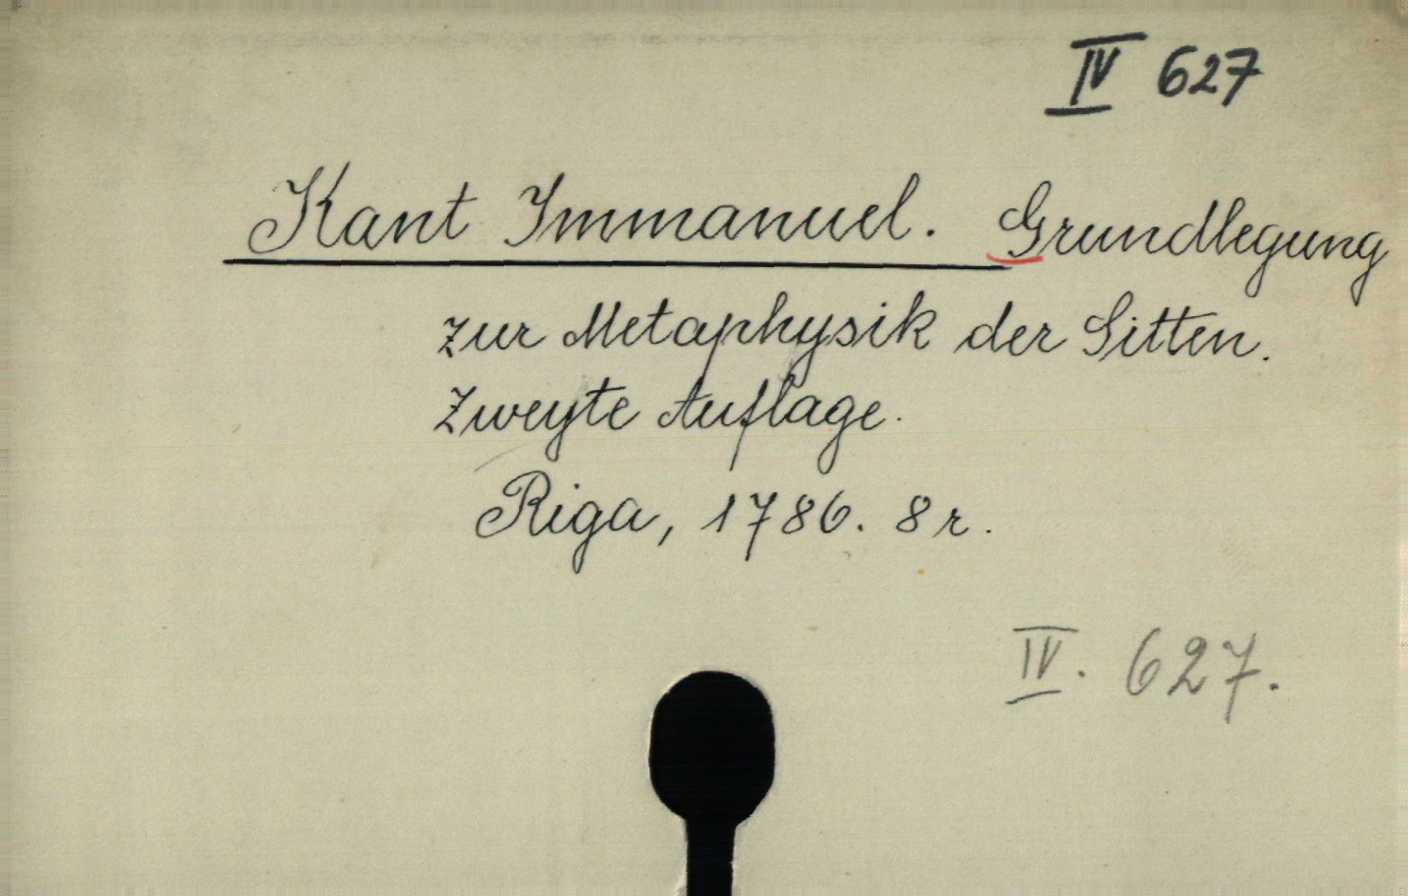 IV 627
Kant Immanuel. Grundlegung
zur Metaphysik der Sitten.
Zweyte Auflage.
Riga, 1786. 8r.
IV. 627.